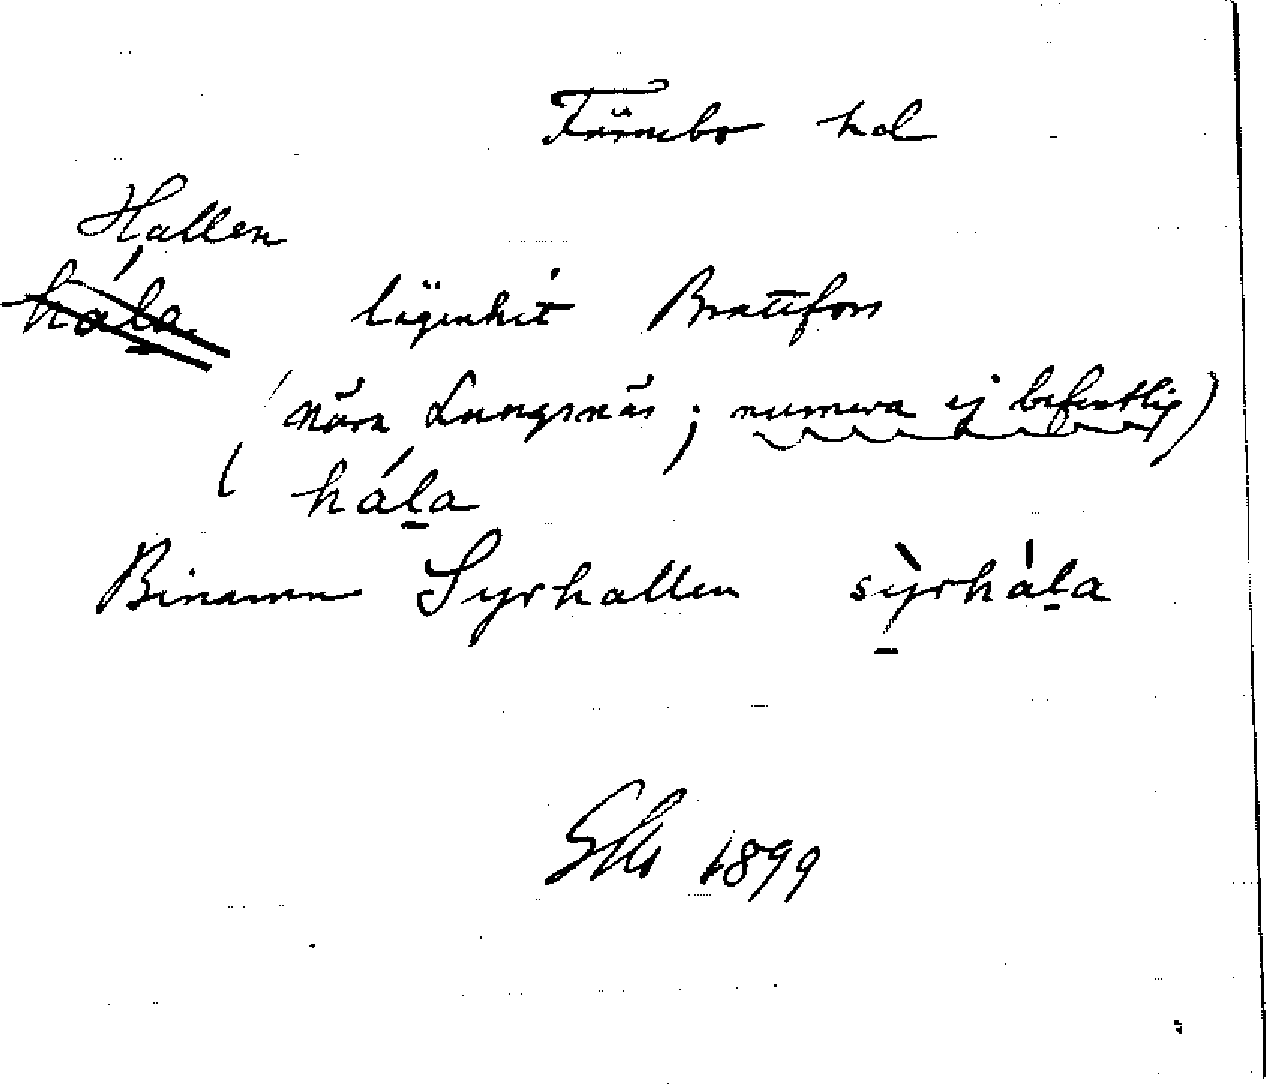 Färnebo hd
Hallen
hála. lägenhet Brattfors
(nära Lungsnäs; numera ej befintlig)
hála
Binamn Syrhallen sỳrhála
1899